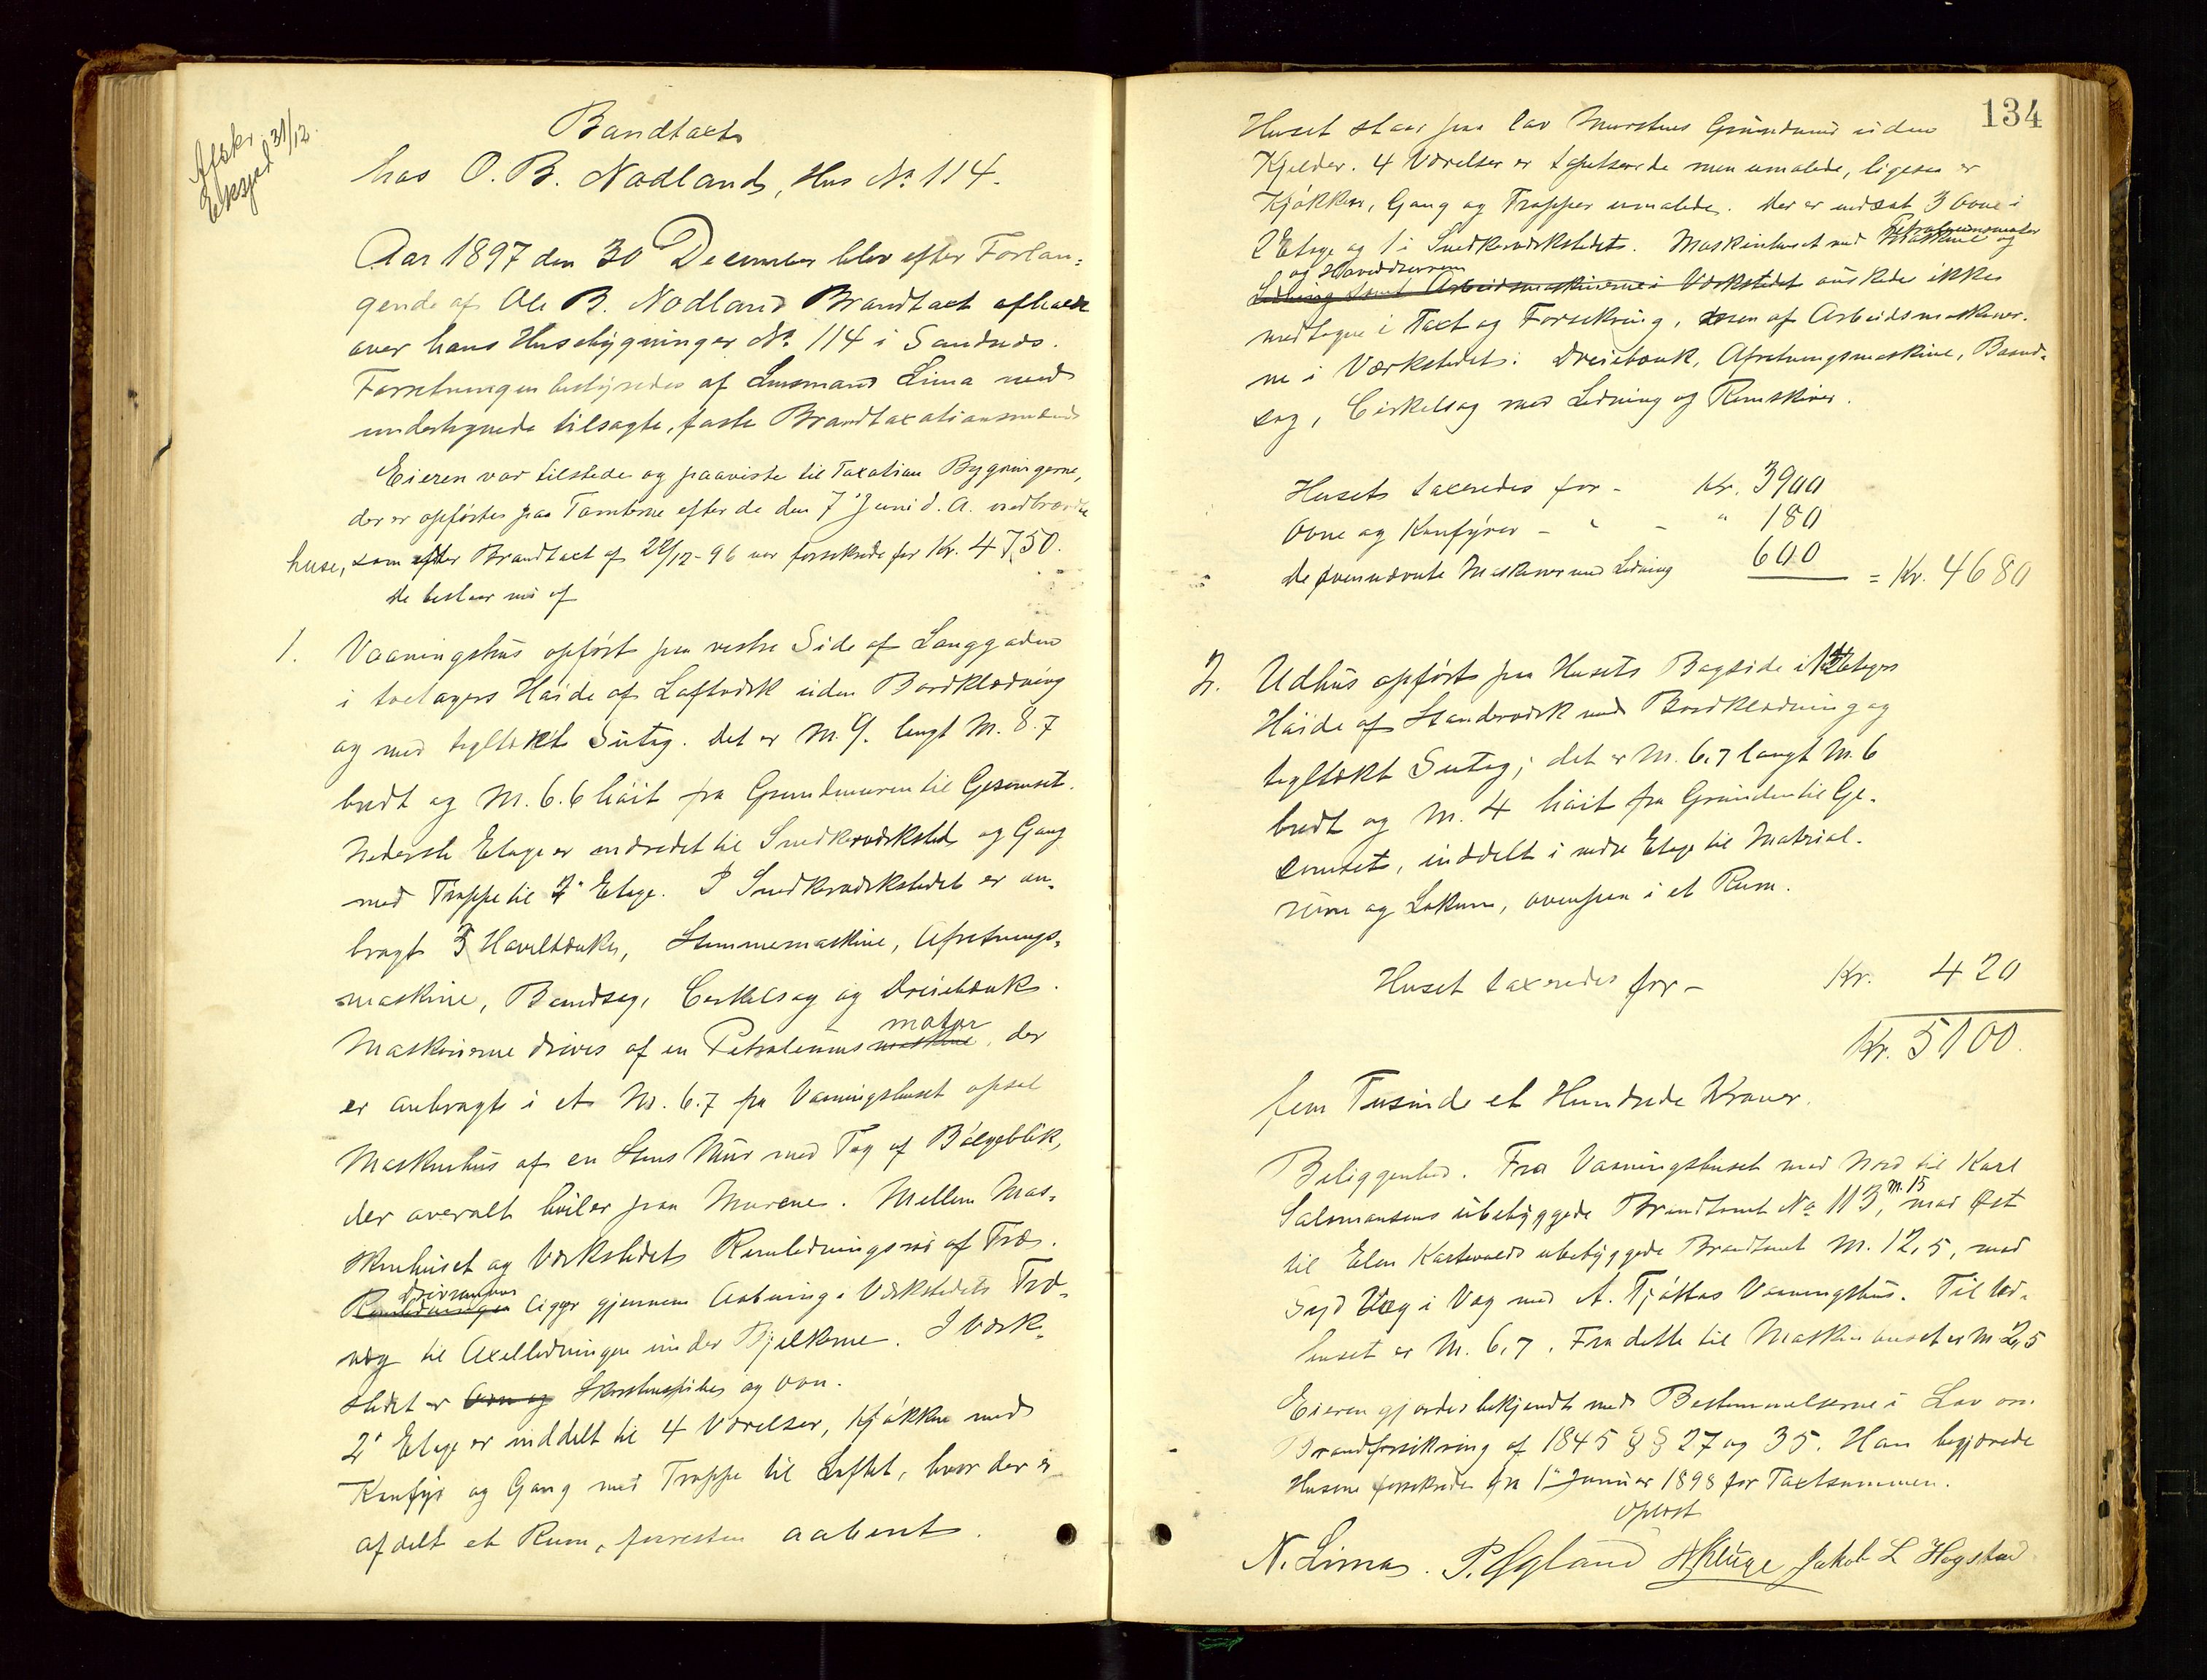 Afskr. 31/12
Eksped
Bandtaxt
hos O. B. Nodland, Hus No 114.
Aar 1897 den 30 December blev efter Forlan-
gende af Ole B. Nodland Brandtaxt afholdt
over hans Husebygninger No 114 i Sandnes.
Forretningen bestyredes af Lensmand Lima med
undertegnede tilsagte, faste Brandtaxationsmænd
Eieren var tilstede og paaviste til Taxation Bygningerne,
der er opførtes paa Tomterne efter de den 7' Juni d. A. nedbrændte
huse, som efter Brandtaxt af 22/12-96 var forsikrede for Kr. 4750.
De bestaar nu af
1. Vaaningshus opført paa vestre Side af Langgaden
i toetagers Høide af Lafteværk uden Bordklædning
og med tegltækt Sutag. Det er M. 9. langt M. 8.7
bredt og M. 6.6 høit fra Grundmuren til Gesemset.
Nederste Etage er indredet til Snedkerværksted og Gang
med Trappe til 2' Etage. I Snedkerværkstedet er an-
bragt 3 Høvelbænke, Stemmemaskine, Afretnings-
maskine, Bandsag, Cirkelsag og Dreiebænk.
motor
Maskinerne drives af en Petroleums maskine, der
er anbragt i et M. 6.7 fra Vaaningshuset opsat
Maskinhus af en Stens Mur med Tag af Bølgeblik,
der overalt hviler paa Murene. Mellem Mas-
kinhuset og Værkstedet Remledningsrør af Træ.
Drivremmen
Remledningen ligger gjennem Aabning i Værkstedets Træ-
væg til Axelledningen under Bjelkerne. I Værk-
stedet er Ovn og Skorstenspibe og Ovn.
2' Etage er inddelt til 4 Værelser, Kjøkken med
Komfyr og Gang med Trappe til Loftet, hvor der er
afdelt et Rum, forresten aabent.
134
Huset staar paa lav Murstens Grundmur uden
Kjelder. 4 Værelser er tapetserede men umalede, ligesaa er
Kjøkken, Gang og Trapper umalede. Der er indsat 3 Ovne i
Petroleumsmotor
2 Etage og 1 i Snedkerværkstedet. Maskinhuset med Maskine og
og Hoveddrivrem
Ledning samt Arbeidsmaskinerne i Værkstedet ønskedes ikke
medtagne i Taxt og Forsikring, men af Arbeidsmaskiner-
ne i Værkstedet: Dreiebænk, Afretningsmaskine, Baand-
sag, Cirkelsag med Ledning og Remskiver.
Huset taxeredes for - Kr. 3900
Ovne og Komfyrer - " - " 180
De ovennævnte Maskiner med Ledning 600 = Kr. 4680
2. Udhus opført paa Husets Bagside i 1 1/2 Etages
Høide af Standerværk med Bordklædning og
tegltækt Sutag; det er M. 6,7 langt M. 6
bredt og M. 4 høit fra Grunden til Ge-
semset, inddelt i nedre Etage til Material-
rum og Lokum, ovenpaa i et Rum.
Huset taxeredes for - Kr. 420
Kr. 5100.
fem Tusinde et Hundrede Kroner.
Beliggenhed. Fra Vaaningshuset mod Nord til Karl
Salomonsens ubebyggede Brandtomt No 113, M. 15 mod Øst
til Elen Kartevolds ubebyggede Brandtomt M. 12,5, mod
Syd Væg i Væg med A. Tjøttas Vaaningshus. Til Ud-
huset er M. 6,7. Fra dette til Maskinhuset er M 2,5
Eieren gjordes bekjendt med Bestemmelserne i Lov om
Brandforsikring af 1845 §§ 27 og 35. Han begjærede
Husene forsikrede fra 1' Januar 1898 for Taxtsummen.
Oplæst
N. Lima. P. Øgland HKluge Jakob L Hogstad